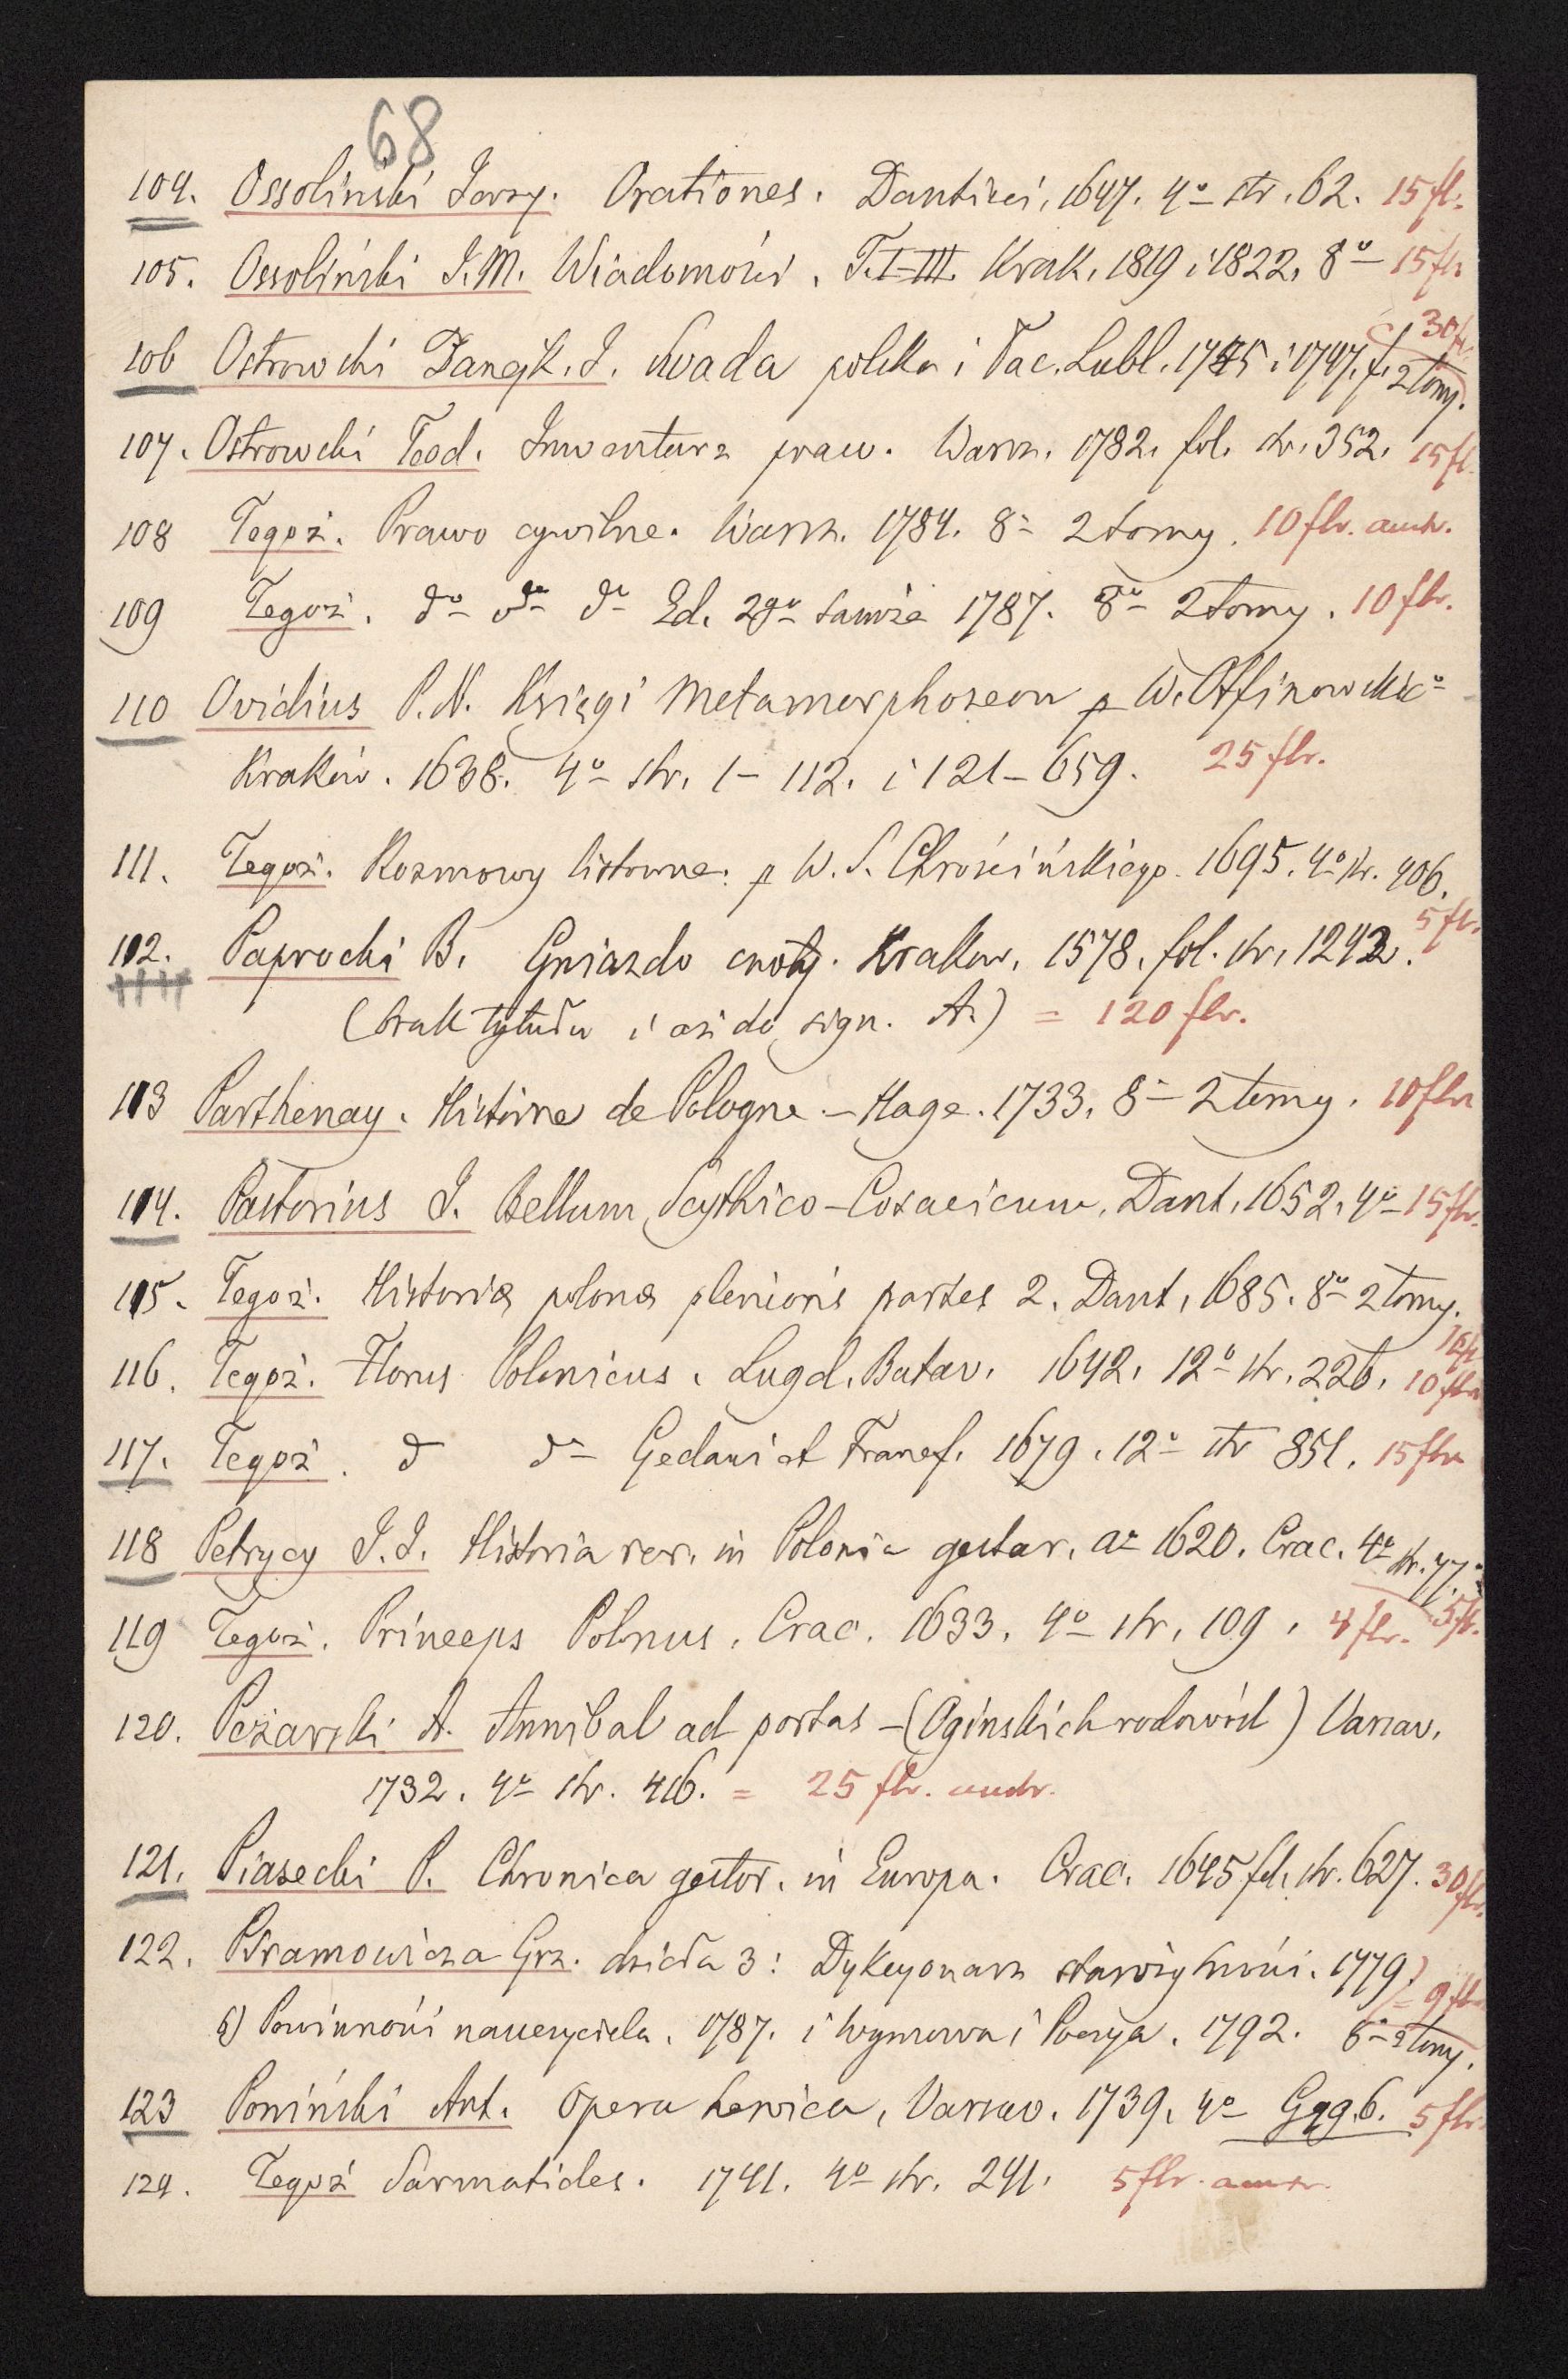 68
104. Ossoliński Jerzy. Orationes. Dantisci, 1647. 4o str. 62. 15 fl.
105. Ossoliński J. M. Wiadomości. T. I-III. Krak. 1819 i 1822. 8o 15 flr
30 fl.
106 Ostrowski Danejk. J. Swada polska i łac. Lubl. 1745 i 1747. f. 2 tomy.
107. Ostrowski Teod. Inwentarz praw. Warsz. 1782. fol. str. 352. 15 fl.
108 Tegoż. Prawo cywilne. Warsz. 1784. 8o 2 tomy. 10 flr. austr.
109 Tegoż. do do do Ed. 2ga tamże 1787. 8o 2 tomy. 10 flr.
110 Ovidius P. N. Księgi Metamorphoseon p W. Otfinowskieo
Kraków. 1638. 4o str. 1-112. i 121-659. 25 flr.
111. Tegoż. Rozmowy listowne. p W. S. Chrościńskiego. 1695. 4o str. 406.
5 flr.
112. Paprocki B. Gniazdo cnoty. Kraków. 1578. fol. str. 1242.
(brak tytułu i aż do sign. A.) = 120 flr.
113 Parthenay. Histoire de Pologne. - Hage. 1733. 8o 2 tomy. 10 flr
114. Pastorius J. Bellum Scythico-Cosacicum. Dant. 1652. 4o 15 flr.
115. Tegoż. Historiæ polonæ plenioris partes 2. Dant. 1685. 8o 2 tomy.
116. Tegoż. Florus Polonicus. Lugd. Batav. 1642. 12o str. 226. 10 flr
117. Tegoż. d do Gedani et Francf. 1679. 12o str 851. 15 flr
118 Petrycy J. J. Historia rer. in Polonia gestar. ao 1620. Crac. 4o str. 77.
5 fl.
119 Tegoż. Princeps Polonus. Crac. 1633. 4o str. 109. 4 flr.
120. Pożarski A. Annibal ad portas - (Ogińskich rodowód) Varsav.
1732. 4o str. 416. = 25 flr. austr.
121. Piasecki P. Chronica gestor. in Europa. Crac. 1645 fol. str. 627. 30 flr.
122. Piramowicza Grz. dzieła 3: Dykcyonarz starożytności. 1779)
= 9 flr
b) Powinności nauczyciela. 1787. i Wymowa i Poezya. 1792. 8o 3 tomy.
123 Poniński Ant. Opera heroica. Varsav. 1739. 4o Ggg.6. 5 flr.
124. Tegoż Sarmatides. 1741. 4o str. 241. 5 flr. austr.